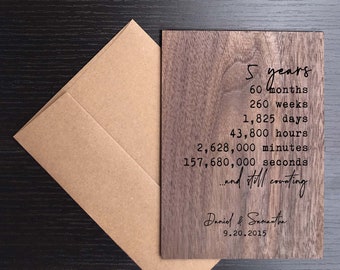 5 years
60 months
260 weeks
1,825 days
43,800 hours
2,628,000 minutes
157,680,000 seconds
...and still counting
Daniel & Samantha
9.20.2015